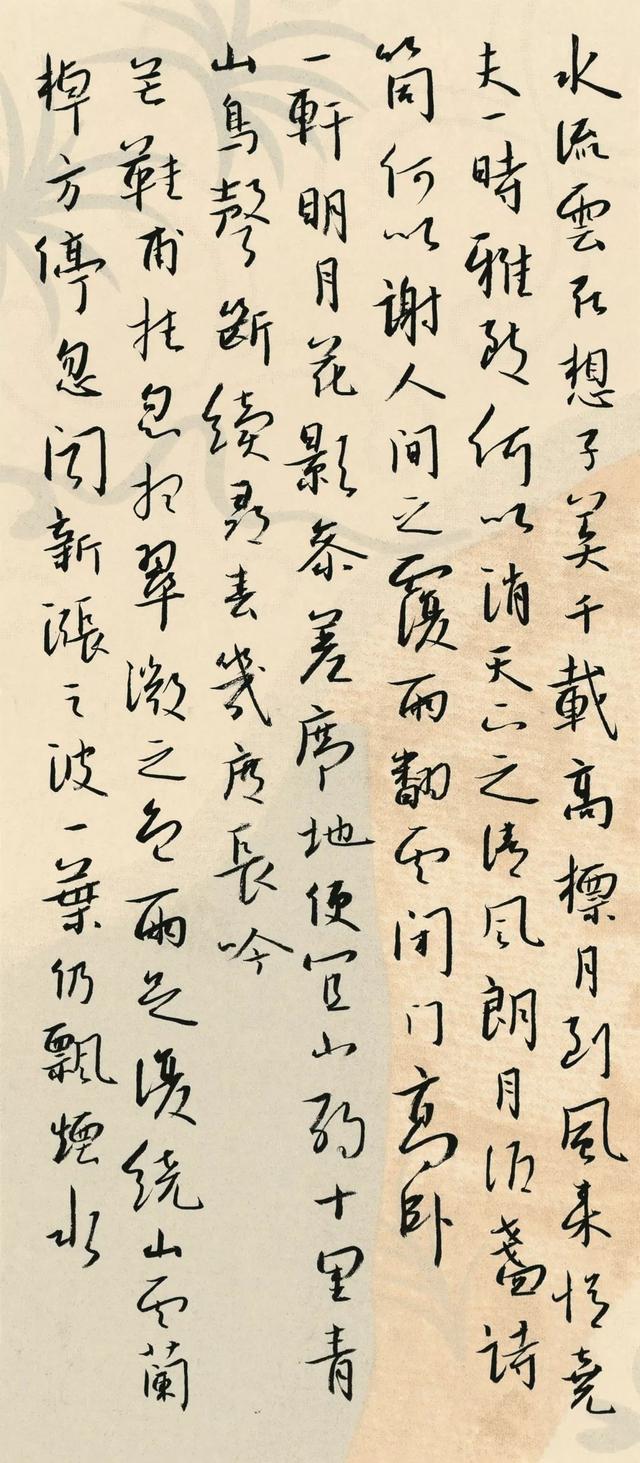 水流雲在想子美千載高標月到風来憶堯
夫一時雅致何以消天下之清風朗月酒盞詩
筒何以謝人间之覆雨翻雲闭门高卧
一軒明月花影參差席地便宜小酌十里青
山鳥聲斷續尋春幾度長吟
芒鞋甫挂忽想翠微之色兩足復繞山雲蘭
棹方停忽闻新漲之波一葉仍飄煙水